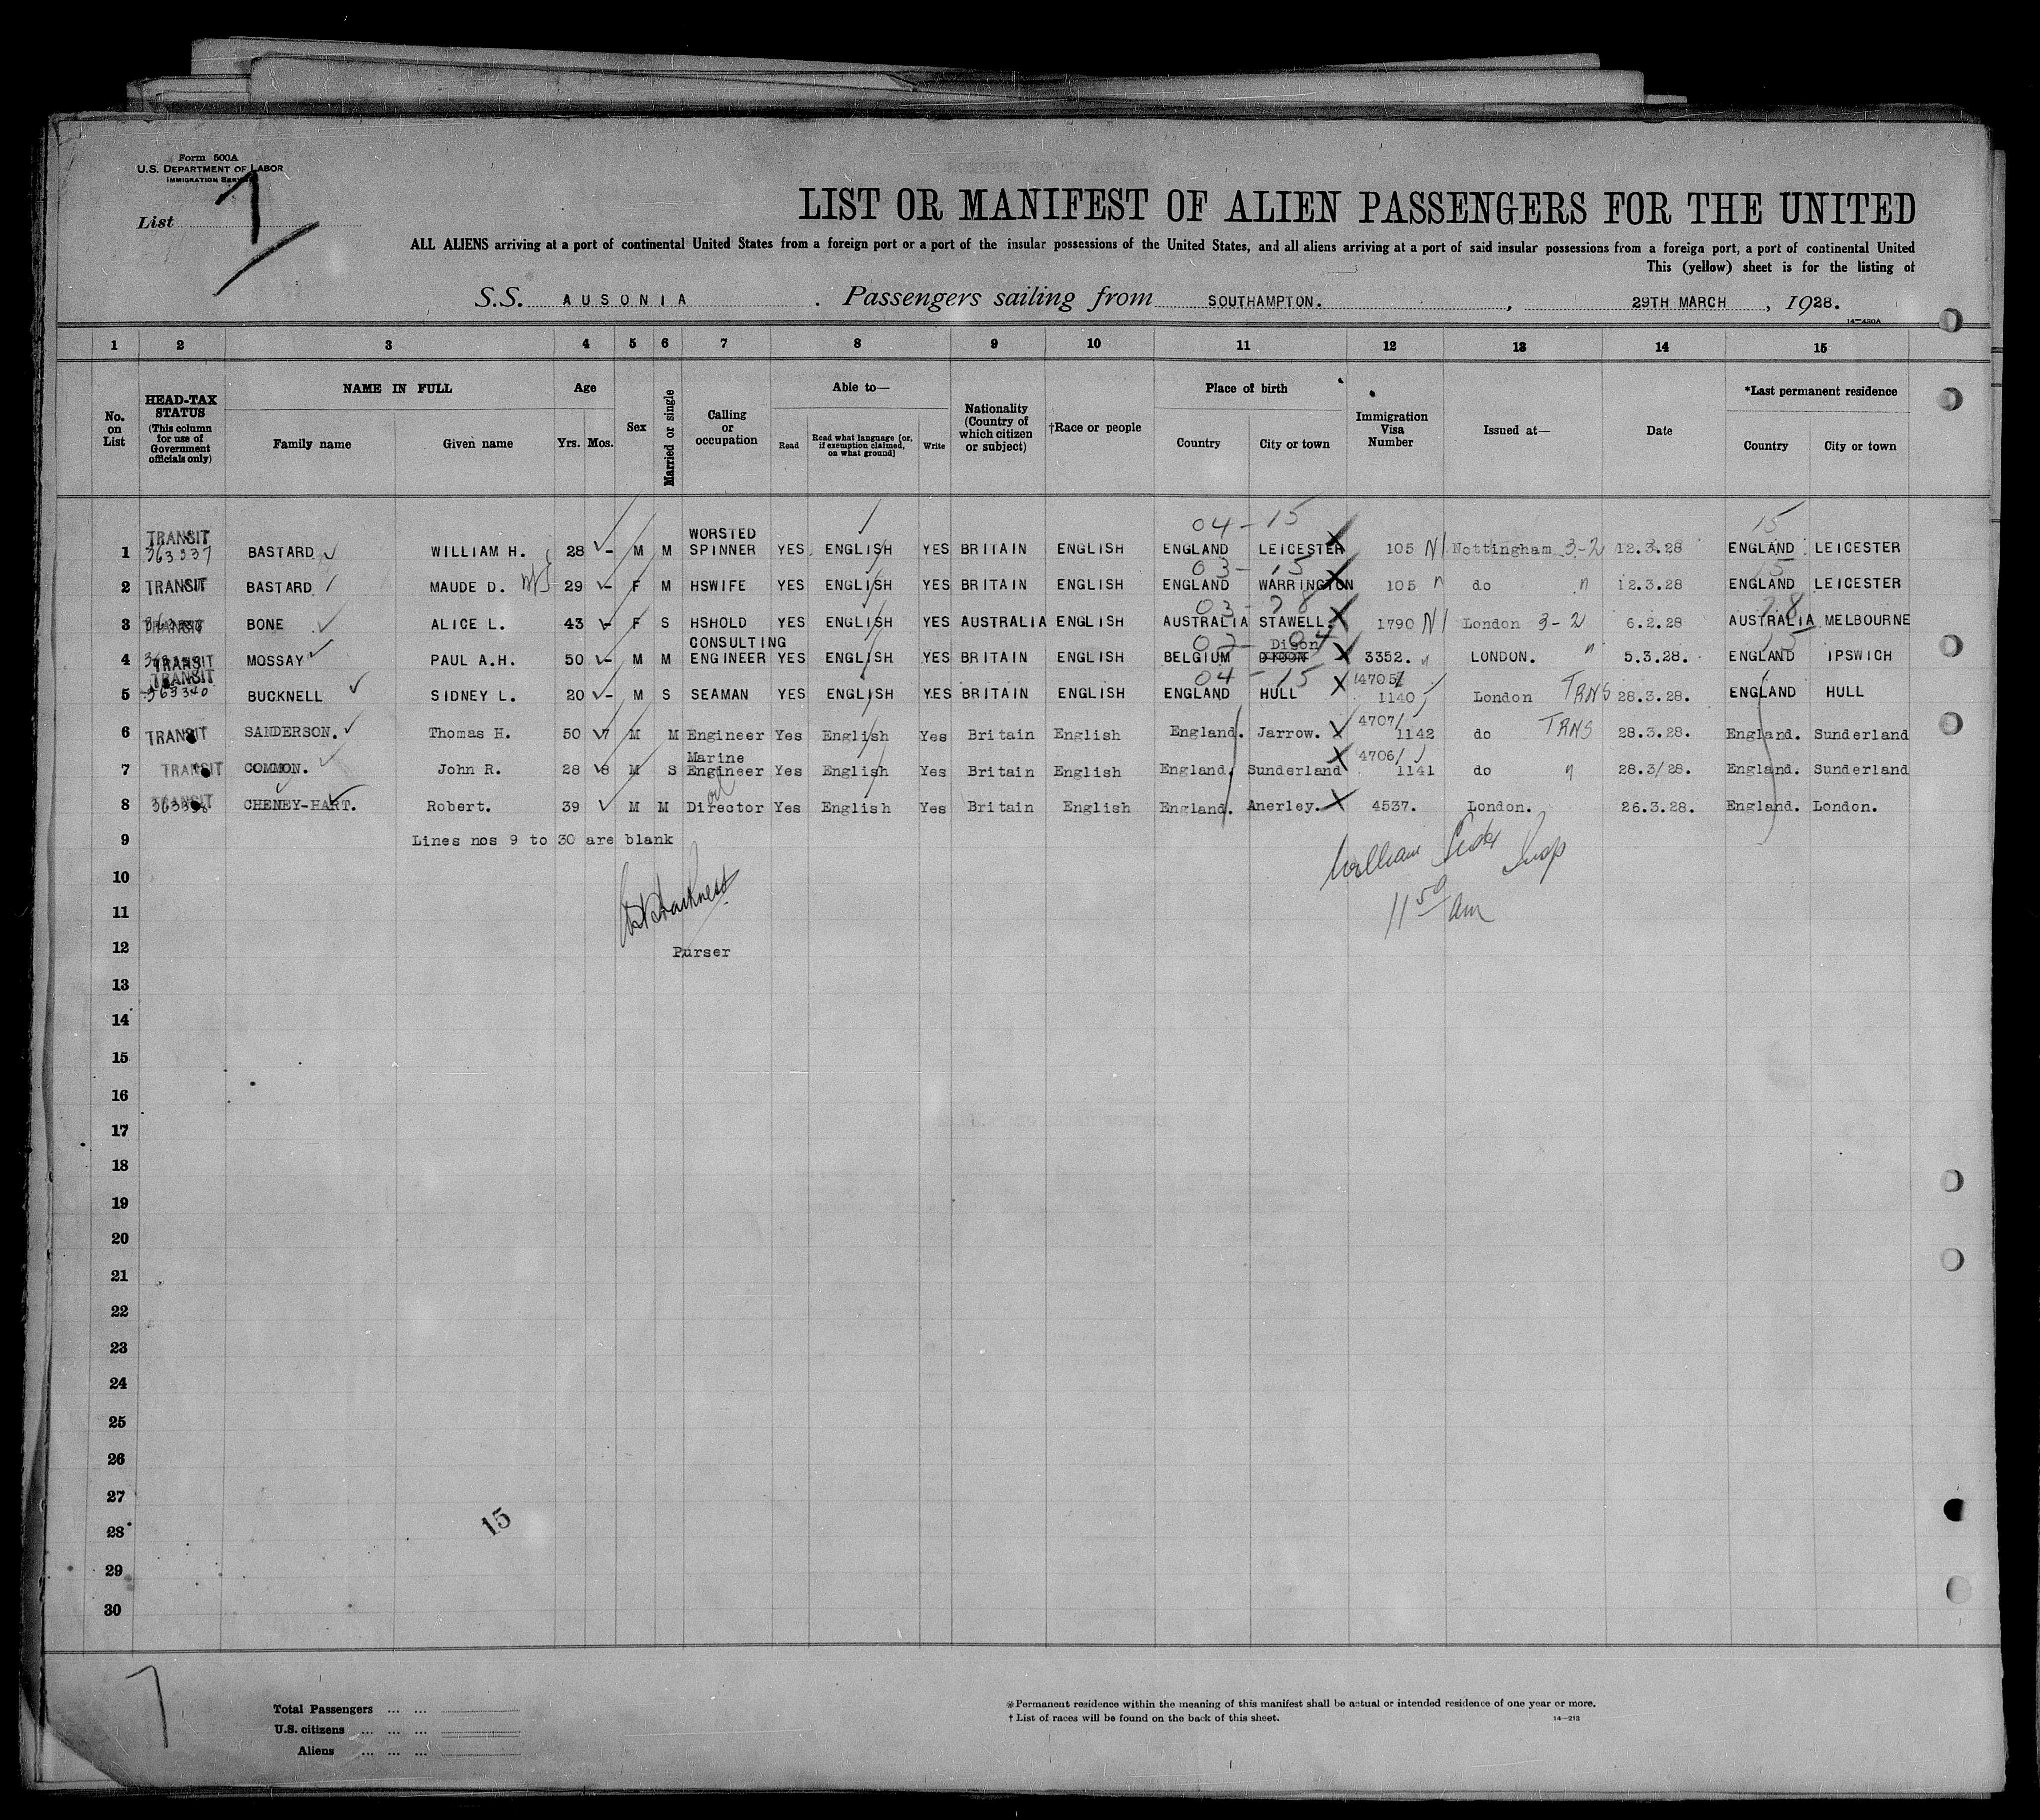 Form 500A
U.S. DEPARTMENT OF LABOR
IMMIGRATION SERVICE
List 7
LIST OR MANIFEST OF ALIEN PASSENGERS FOR THE UNITED
ALL ALIENS arriving at a port of continental United States from a foreign port or a port of the insular possessions of the United States, and all aliens arriving at a port of said insular possessions from a foreign port, a port of continental United
This (yellow) sheet is for the listing of
S.S. AUSONIA . Passengers sailing from SOUTHAMPTON. , 29TH MARCH , 1928.
14—430A
1 2 3 4 5 6 7 8 9 10 11 12 13 14 15
No. on List
HEAD-TAX STATUS (This column for use of Government officials only)
NAME IN FULL
Family name Given name
Age
Yrs. Mos.
Sex
Married or single
Calling or occupation
Able to—
Read Read what language [or, if exemption claimed, on what ground] Write
Nationality (Country of which citizen or subject)
†Race or people
Place of birth
Country City or town
Immigration Visa Number
Issued at—
Date
*Last permanent residence
Country City or town
04-15 15
1 TRANSIT 363337 BASTARD WILLIAM H. 28 - M M WORSTED SPINNER YES ENGLISH YES BRITAIN ENGLISH ENGLAND LEICESTER 105 NI Nottingham 3-2 12.3.28 ENGLAND LEICESTER
03-15 15
2 TRANSIT BASTARD MAUDE D. 29 - F M HSWIFE YES ENGLISH YES BRITAIN ENGLISH ENGLAND WARRINGTON 105 " do " 12.3.28 ENGLAND LEICESTER
03-78 78
3 TRANSIT BONE ALICE L. 43 - F S HSHOLD YES ENGLISH YES AUSTRALIA ENGLISH AUSTRALIA STAWELL. 1790 NI London 3-2 6.2.28 AUSTRALIA MELBOURNE
02-04 15
4 TRANSIT MOSSAY PAUL A.H. 50 - M M CONSULTING ENGINEER YES ENGLISH YES BRITAIN ENGLISH BELGIUM Dison 3352. " LONDON. " 5.3.28. ENGLAND IPSWICH
04-15
5 TRANSIT 363340 BUCKNELL SIDNEY L. 20 - M S SEAMAN YES ENGLISH YES BRITAIN ENGLISH ENGLAND HULL 4705/ 1140 London TRNS 28.3.28. ENGLAND HULL
6 TRANSIT SANDERSON. Thomas H. 50 7 M M Engineer Yes English Yes Britain English England. Jarrow. 4707/ 1142 do TRNS 28.3.28. England. Sunderland
7 TRANSIT COMMON. John R. 28 8 M S Marine Engineer Yes English Yes Britain English England. Sunderland 4706/ 1141 do " 28.3/28. England. Sunderland
8 TRANSIT CHENEY-HART. Robert. 39 M M Director Yes English Yes Britain English England. Anerley. 4537. London. 26.3.28. England. London.
9 Lines nos 9 to 30 are blank
10 William
11 11 50 am
12 Purser
13
14
15
16
17
18
19
20
21
22
23
24
25
26
27
28
15
29
30
7
Total Passengers
U.S. citizens
Aliens
*Permanent residence within the meaning of this manifest shall be actual or intended residence of one year or more.
† List of races will be found on the back of this sheet.
14—213